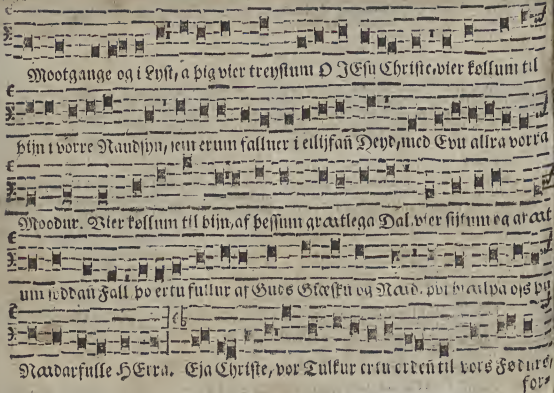 Mootgange og i Lyst, a þig vier treystum O JEsu Christe, vier kollum til
þijn i vorre Naudsyn, sem erum fallner i eilijfañ Deyd, med Evu allra vorra
Moodur. Vier kollum til þijn, af þessum grætlega Dal, vier sijtum og
um soddañ Fall, þo ertu fullur af Guds Giæsku og Naad, þvi hialpa oss þu
Naadarfulle HErra. Eja Christe, vor Tulkur ertu ordeñ til vors Fødurs,
fors